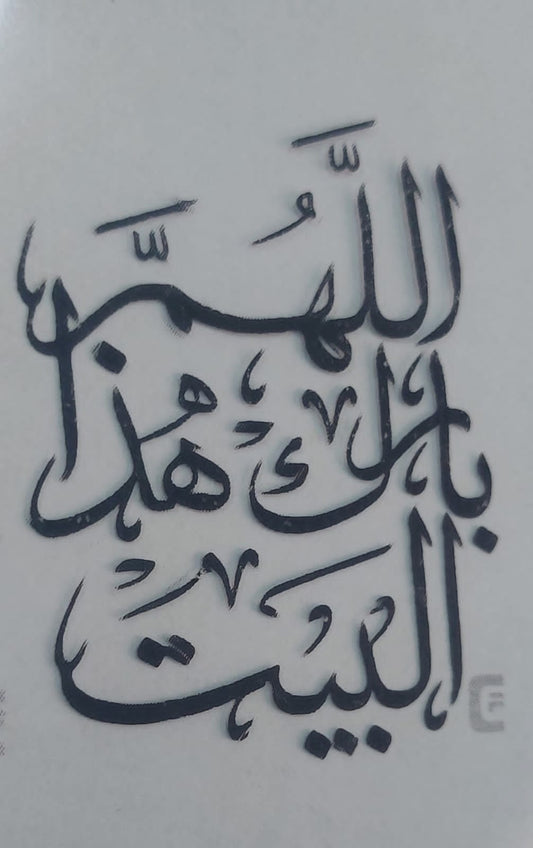 اللَّهُمَّ
بارك هذا
البيت